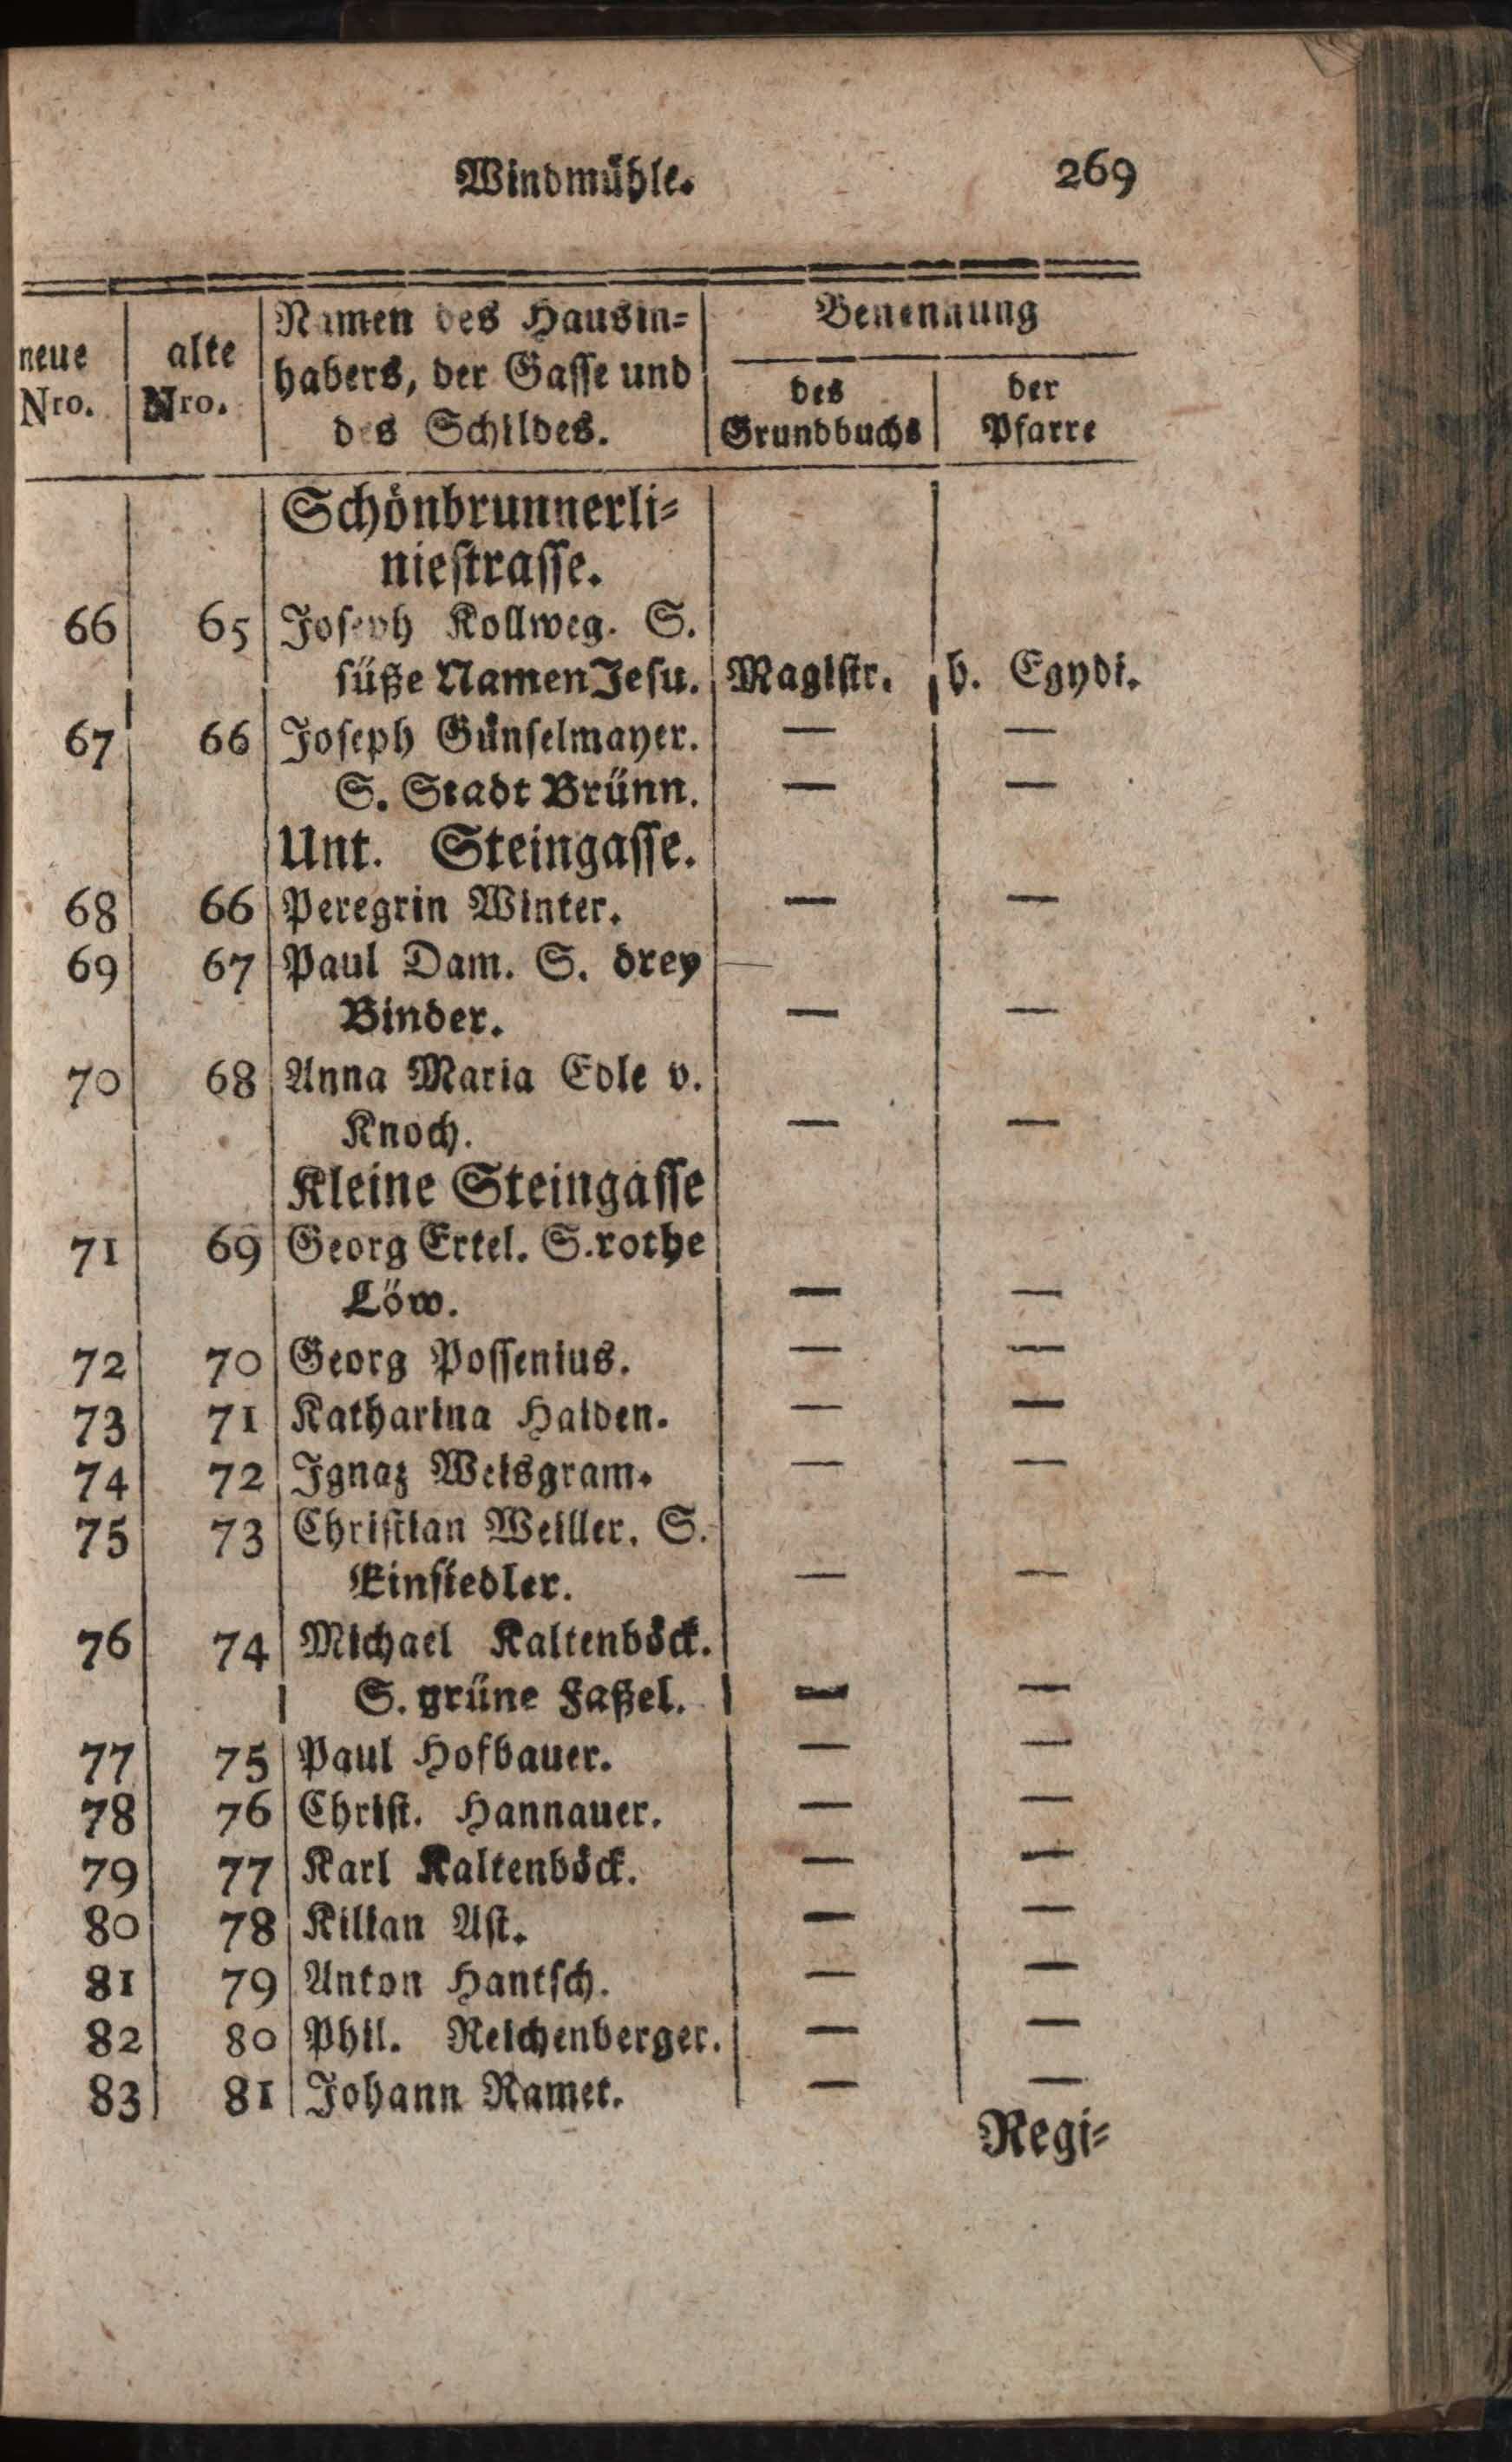 Windmühle. 269
neue Nro. | alte Nro. | Namen des Hausin-
habers, der Gasse und
des Schildes. | Benennung
des Grundbuchs | der Pfarre
Schönbrunnerli-
niestrasse.
66 65 Joseph Kollweg. S.
süße Namen Jesu. Magistr. b. Egydi.
67 66 Joseph Günselmayer. — —
S. Stadt Brünn. — —
Unt. Steingasse.
68 66 Peregrin Winter. — —
69 67 Paul Dam. S. drey
Binder. — —
70 68 Anna Maria Edle v.
Knoch. — —
Kleine Steingasse
71 69 Georg Ertel. S. rothe
Löw. — —
72 70 Georg Possenius. — —
73 71 Katharina Haiden. — —
74 72 Ignaz Weisgram. — —
75 73 Christian Weiller. S.
Einsiedler. — —
76 74 Michael Kaltenböck.
S. grüne Faßel. — —
77 75 Paul Hofbauer. — —
78 76 Christ. Hannauer. — —
79 77 Karl Kaltenböck. — —
80 78 Kilian Ast. — —
81 79 Anton Hantsch. — —
82 80 Phil. Reichenberger. — —
83 81 Johann Ramet. — —
Regi-